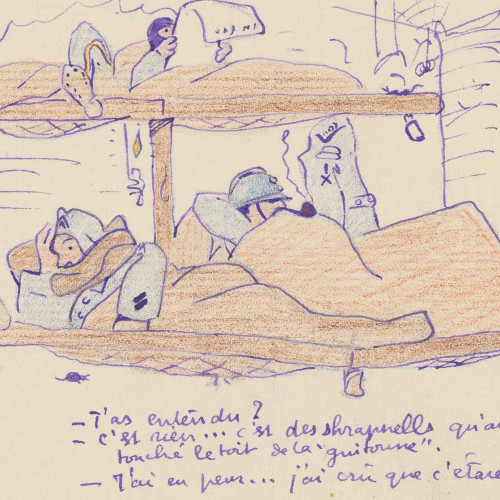 — T'as entendu ?
— C'est rien... c'est des shrapnells qu'a
touché le toit de la "guitoune".
— J'ai eu peur... j'ai crû que c'étai